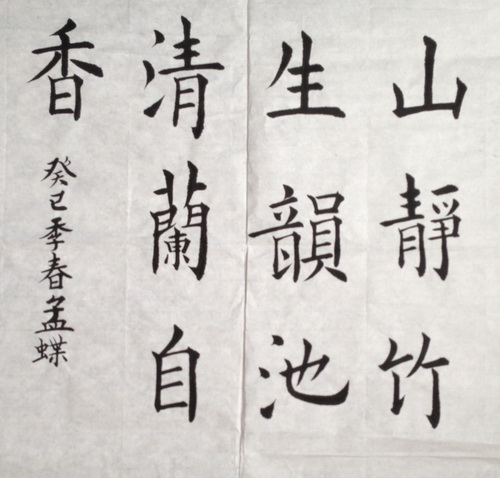 山靜竹
生韻池
清蘭自
香
癸巳季春孟蝶